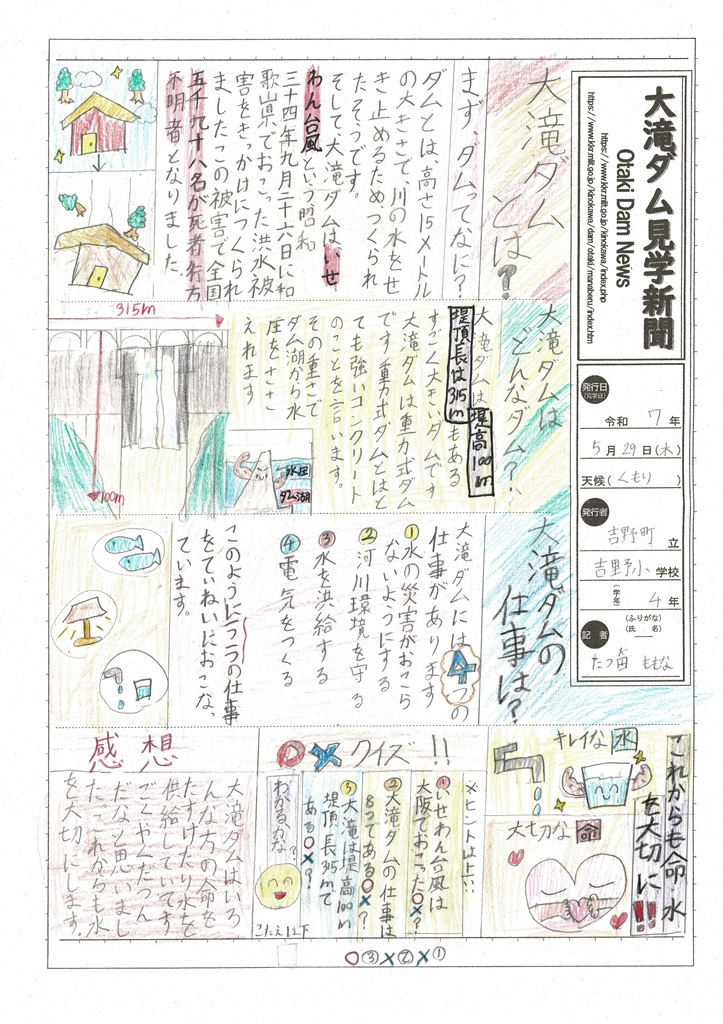 大滝ダム見学新聞
Otaki Dam News
https://www.kkr.mlit.go.jp/kinokawa/index.php
https://www.kkr.mlit.go.jp/kinokawa/dam/otaki/manaberu/index.htm
発行日
(見学日)
令和 7 年
5 月 29 日 (木)
天候( くもり )
発行者
吉野町 立
吉野小 学校
(学年) 4 年
記者
(ふりがな)
(氏 名)
ももな
大滝ダム
とは?
まず、ダムってなに?
ダムとは、高さ15メートル
の大きさで、川の水をせ
き止めるためつくられ
たそうです。
そして、大滝ダムは、いせ
わん台風という昭和
三十四年九月二十六日に和
歌山県でおこった洪水被
害をきっかけにつくられ
ましたこの被害で全国
五千九十八名が死者行方
不明者となりました。
大滝ダムは
どんなダム?
大滝ダムは堤高100m
堤頂長は315mもある
すごく大きいダムです
大滝ダムは重力式ダム
です重力式ダムとはと
ても強いコンクリート
のことを言います。
その重さで
ダム湖から水
圧をささ
えれます
水圧
ダム湖
315m
100m
大滝ダムの
仕事は?
大滝ダムには4つの
仕事があります
①水の災害がおこら
ないようにする
②河川環境を守る
③水を洪給する
④電気をつくる
このように一つ一つの仕事
をていねいにおこなっ
ています。
これからも命・水
を大切に!!
キレイな水
大切な命
○×クイズ!!
※ヒントは上に
①いせわん台風は
大阪でおこった○×?
②大滝ダムの仕事は
8つである○×?
③大滝は堤高100m
堤頂長315mで
ある○×?
わかるかな?
こたえは下
①×②×③○
感想
大滝ダムはいろ
んな方の命を
たすけたり水を
供給していてす
ごくやんだっん
だなと思いまし
たこれからも水
を大切にします。